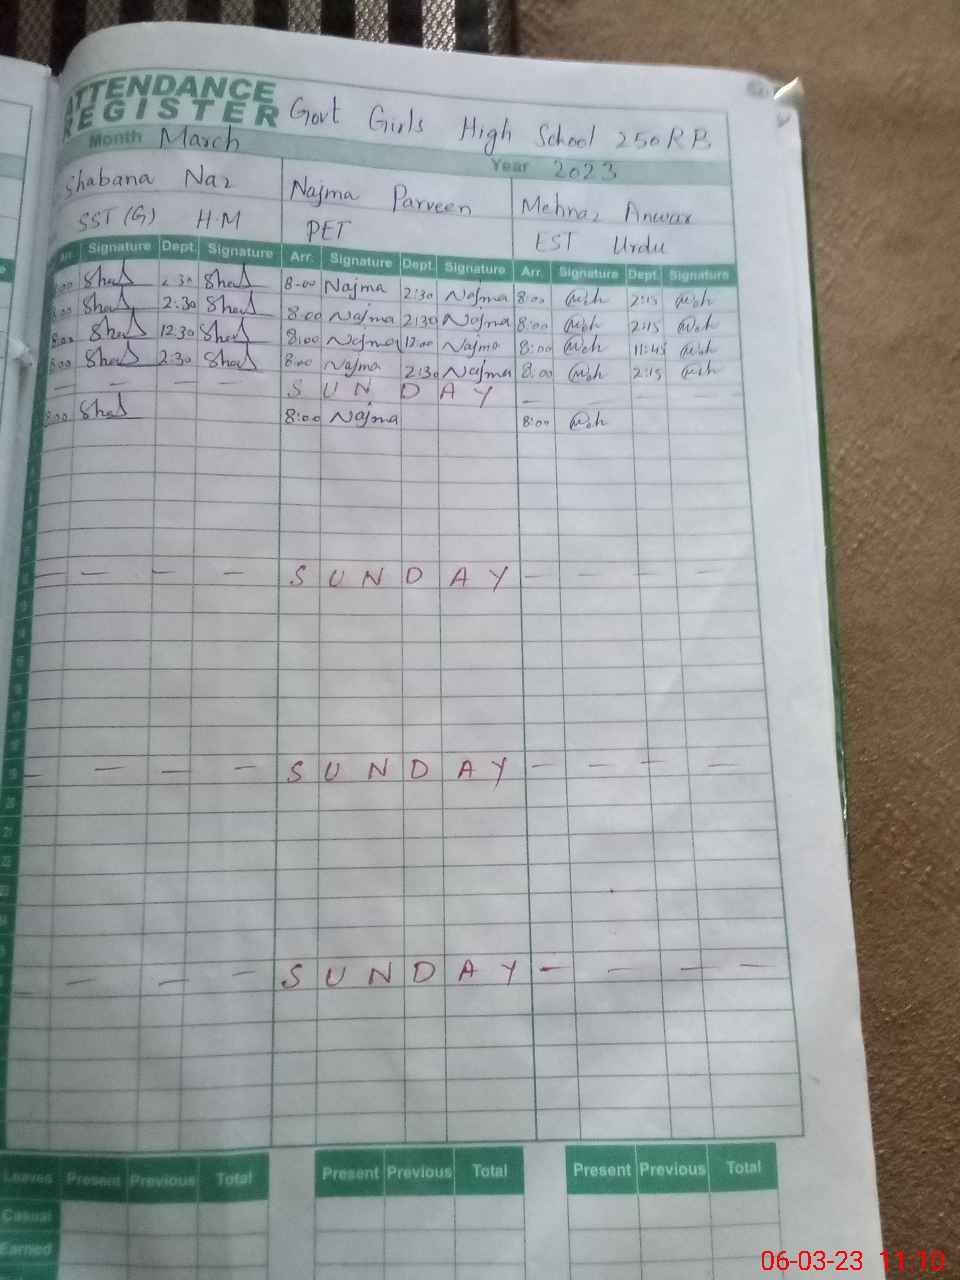 ATTENDANCE
REGISTER Govt Girls High School 250RB
Month March Year 2023
Shabana Naz Najma Parveen Mehnaz Anwar
SST (G) H.M PET EST Urdu
Arr. Signature Dept. Signature Arr. Signature Dept. Signature Arr. Signature Dept. Signature
8:00 2:30 8:00 Najma 2:30 Najma 8:00 2:15
8:00 2:30 8:00 Najma 2:30 Najma 8:00 2:15
8:00 12:30 8:00 Najma 12:00 Najma 8:00 11:45
8:00 2:30 8:00 Najma 2:30 Najma 8:00 2:15
— — — — S U N D A Y — — — —
8:00 8:00 Najma 8:00
— — — — S U N D A Y — — — —
13
14
15
16
17
18
19 — — — — S U N D A Y — — — —
20
21
22
23
— — — S U N D A Y — — — —
Leaves Present Previous Total Present Previous Total Present Previous Total
Casual
Earned
06-03-23 11:10